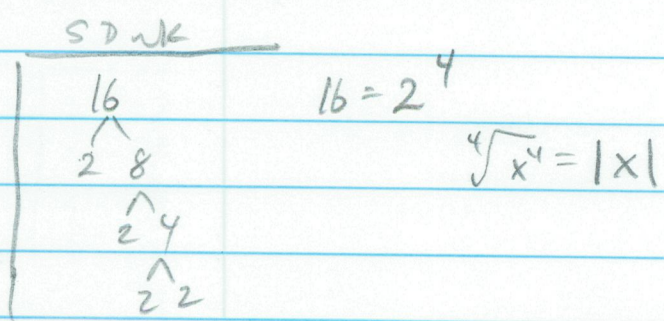 SD wk
16
2 8
2 4
2 2
16 = 2^4
∜x^4 = |x|